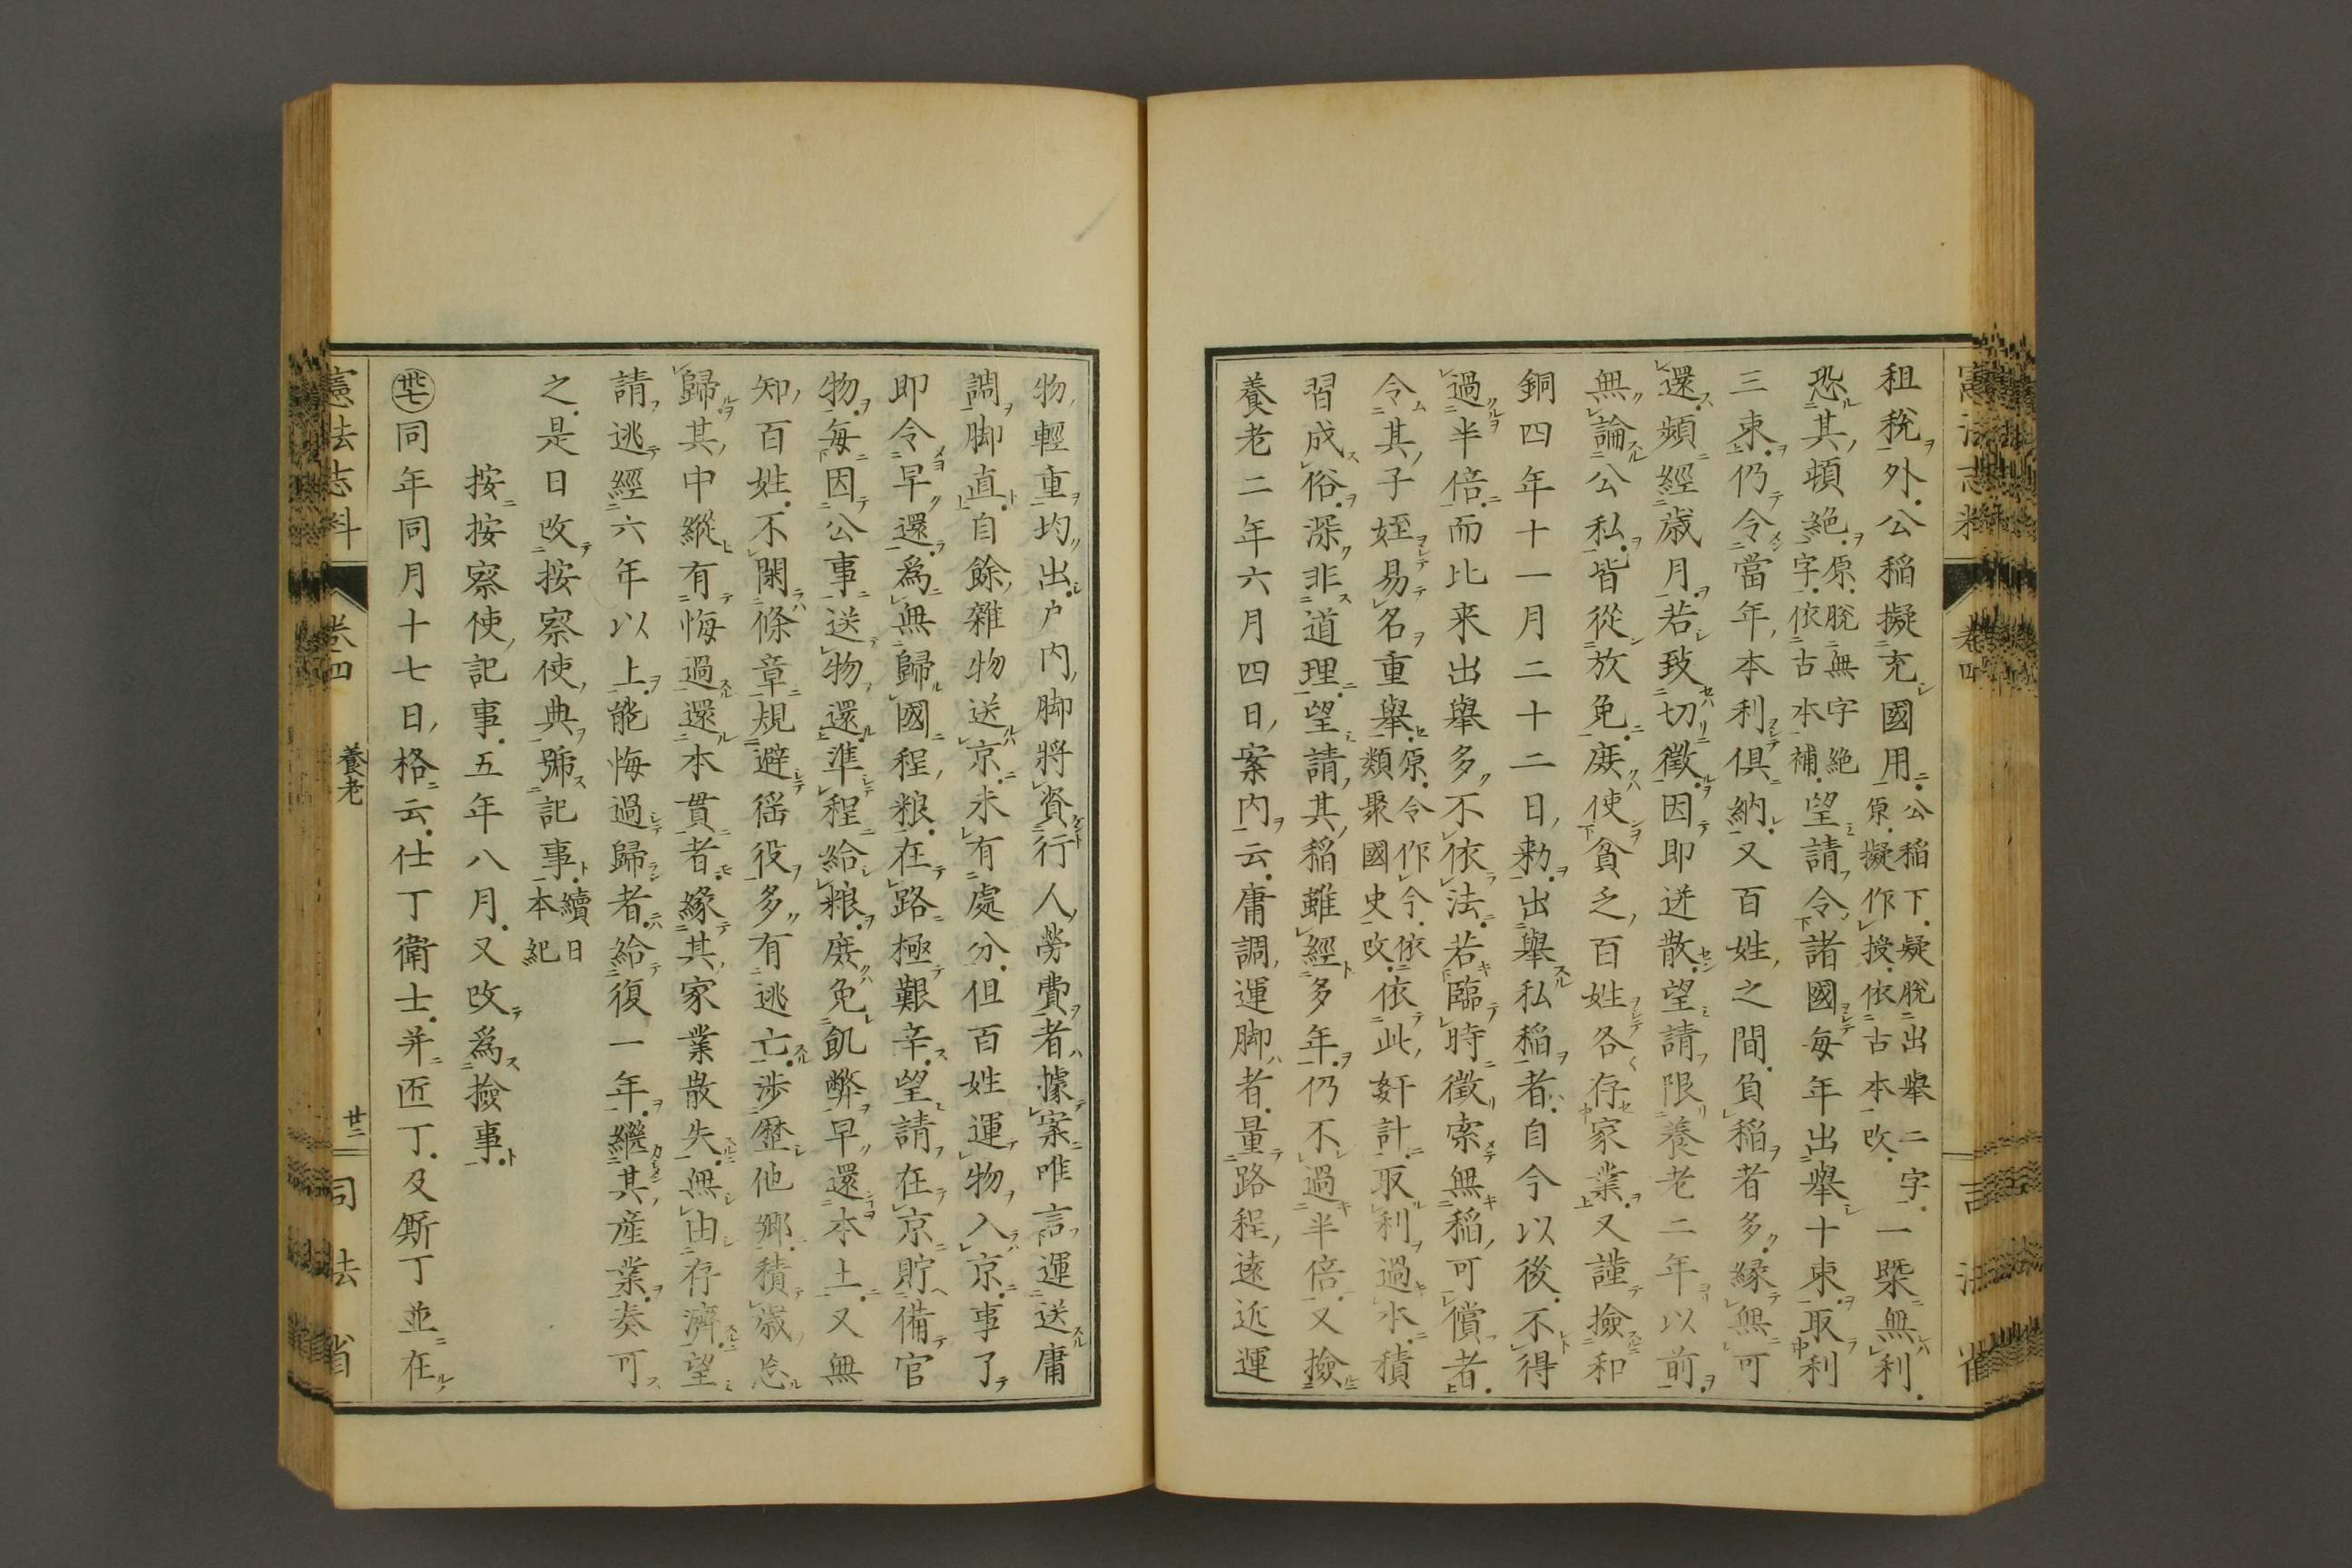 租稅外公稻擬充國用公稻下疑脫出擧二字原擬作授依古本改一槩無利
恐其頓絶原脫無字絶字依古本補望請令諸國每年出擧十束取利
三束仍令當年本利俱納又百姓之間負稻者多緣無可
還頻經歲月若致切徵因卽迸散望請限養老二年以前
無論公私皆從放免庶使貧乏百姓各存家業又謹撿和
銅四年十一月二十二日勅出擧私稻者自今以後不得
過半倍而比来出擧多不依法若臨時徵索無稻可償者
令其子姪易名重擧原令作今依類聚國史改依此奸計取利過本積
習成俗深非道理望請其稻雖經多年仍不過半倍又撿
養老二年六月四日案内云庸調運脚者量路程遠近運
物輕重均出户内脚將資行人勞費者據案唯言運送庸
調脚直自餘雜物送京未有處分但百姓運物入京事了
即令早還爲無歸國程粮在路極艱辛望請在京貯備官
物每因公事送物還準程給粮庶免飢弊早還本土又無
知百姓不閑條章規避徭役多有逃亡涉歷他郷積歲忘
歸其中縱有悔過還本貫者緣其家業散失無由存濟望
請逃經六年以上能悔過歸者給復一年繼其産業奏可
之是日改按察使典號記事續日本紀
按按察使記事五年八月又改爲撿事
丗七同年同月十七日格云仕丁衛士并匠丁及厮丁並在
憲法志料
卷四
養老
廿二
司法省